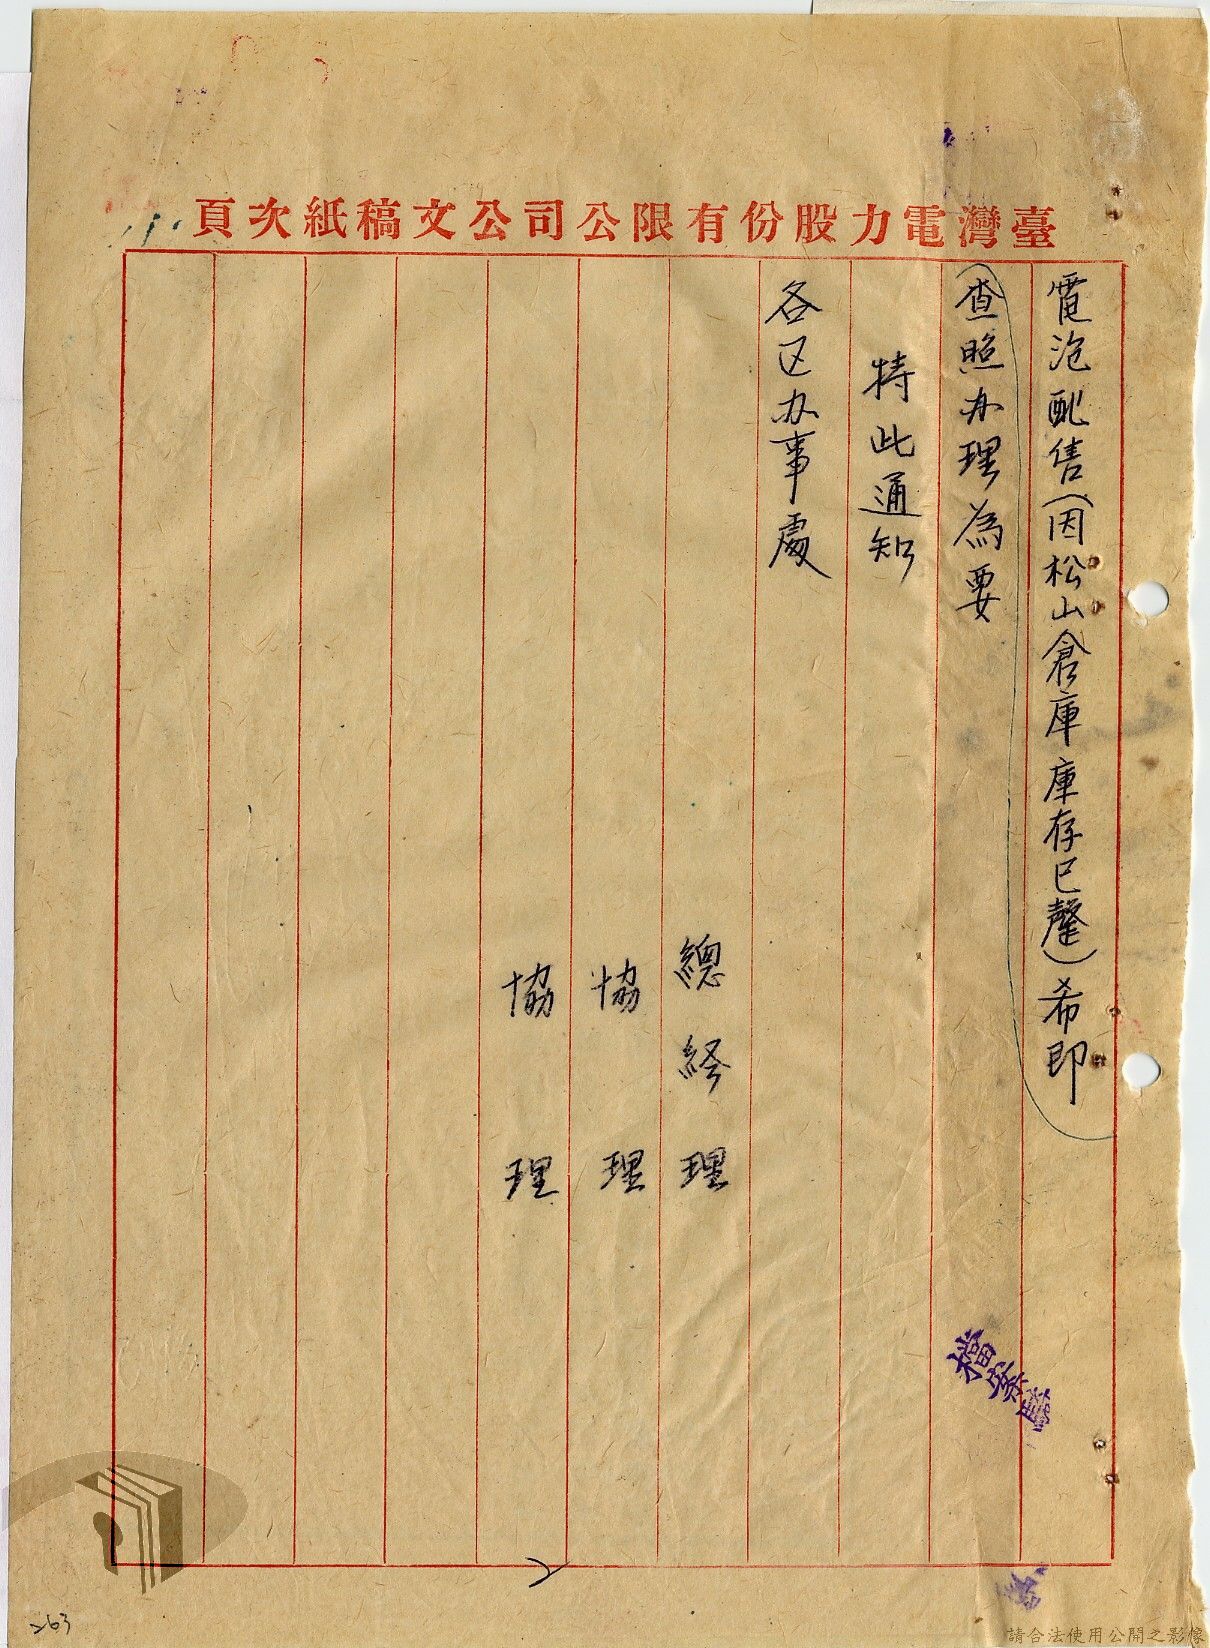 臺灣電力股份有限公司公文稿紙次頁
電泡配售(因松山倉庫庫存已罄)希即
查照办理為要
特此通知
各区办事處
總經理
協理
協理
檔案驗
263
請合法使用公開之影像